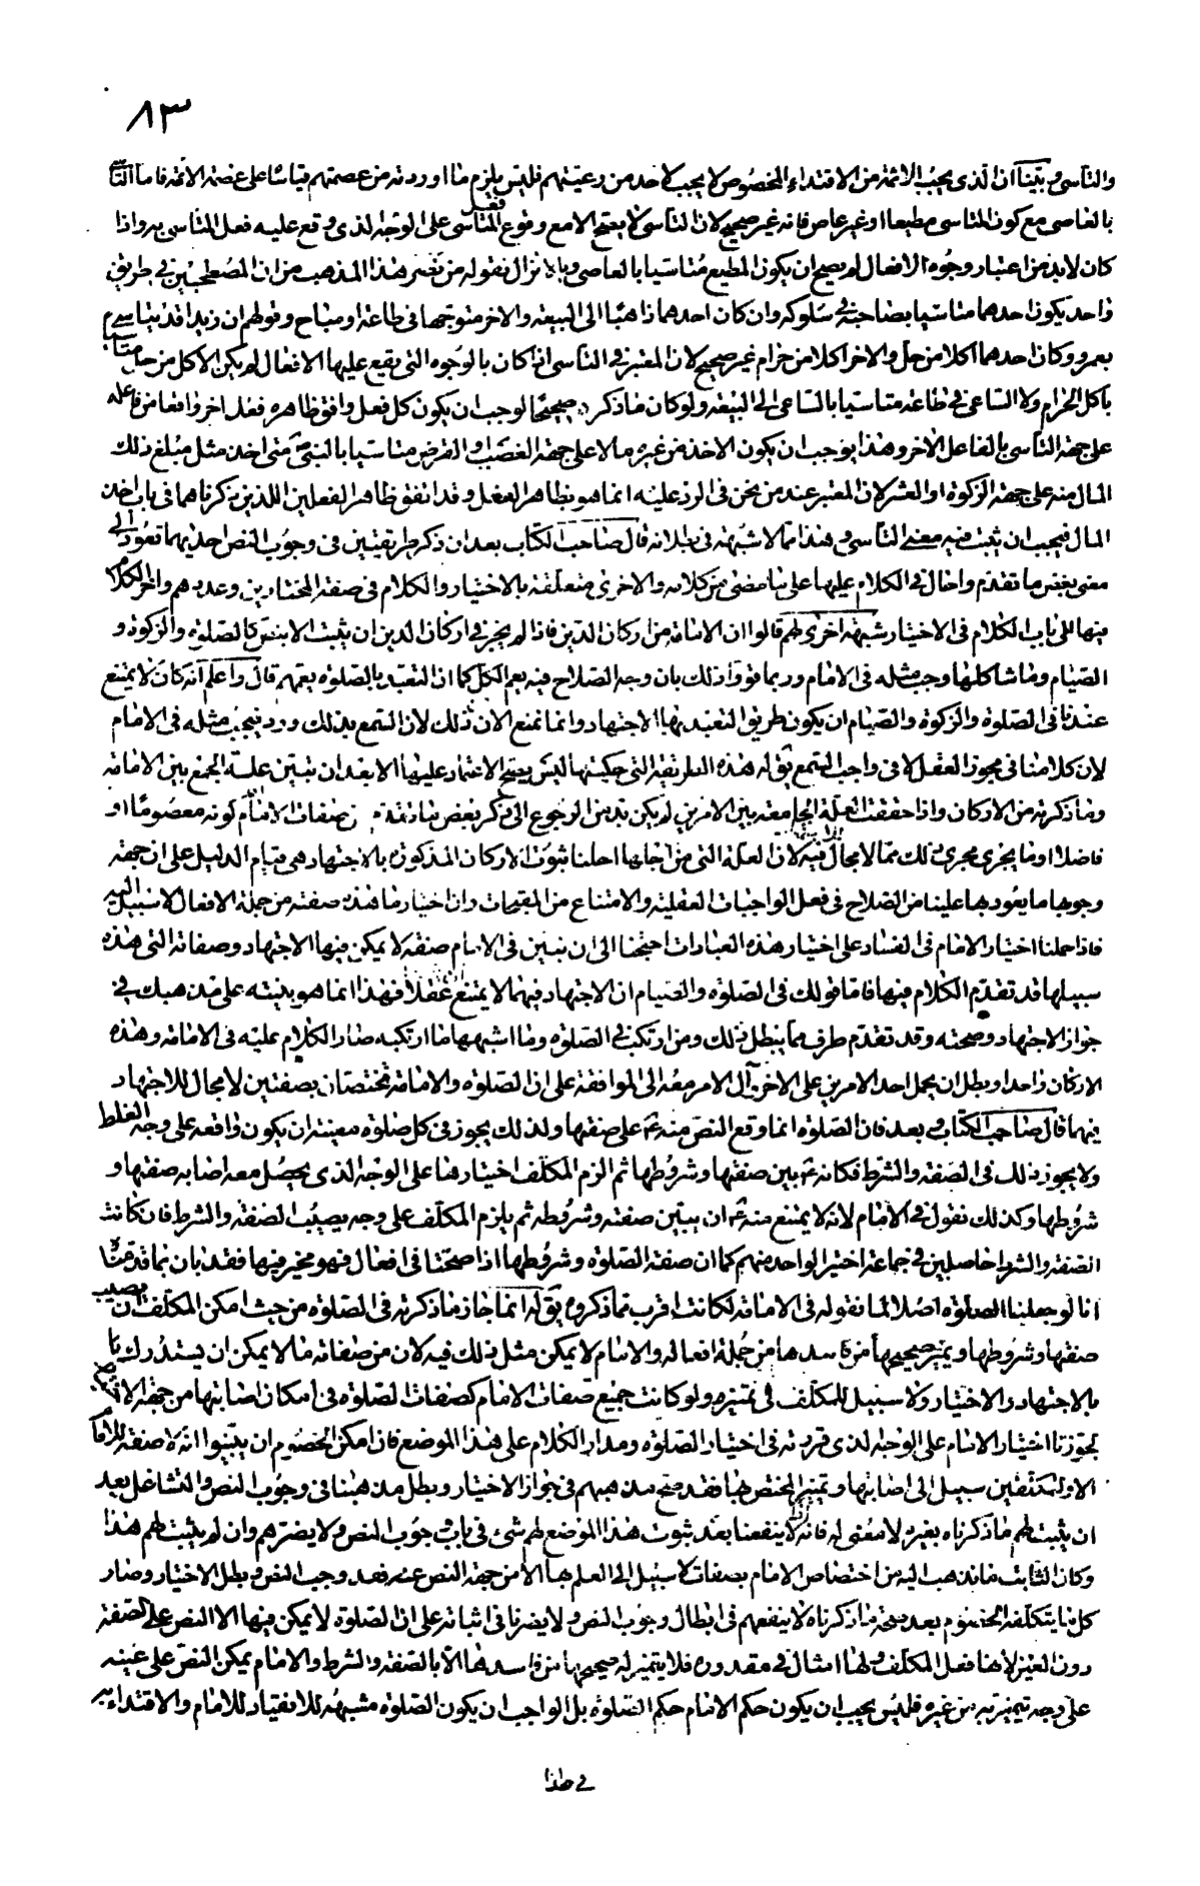 ٨٣
والتأسى وبيّنا ان الذى يجب للائمة من الاقتداء المخصوص لا يجب لاحد من رعيتهم فليس يلزم ما اوردته من عصمتهم قياسًا على عصمة الائمة فاما التأسى
بالعاصى مع كون المتاسى مطيعا او غير عاص فانه غير صحيح لان التاسى لا يصح الا مع وقوع فعل المتاسى على الوجه الذى وقع عليه فعل المتاسى به واذا
كان لا بد من اعتبار وجوه الافعال لم يصح ان يكون المطيع متاسيا بالعاصى وبالا نزال نقوله من نصر هذا المذهب من ان المصطحبين فى طريق
واحد يكون احدهما متاسيا بصاحبه فى سلوكه وان كان احدهما ذاهبًا الى البيعة والاخر متوجها فى طاعة او مباح وقولهم ان زيدا قد يتاسى
بعمرو وكان احدهما اكلا من حل والاخر اكلا من حرام غير صحيح لان المعتبر فى التاسى اذا كان بالوجوه التى يقع عليها الافعال لم يكن الاكل من حل متاسيا
باكل الحرام ولا الساعى فى طاعة متاسيا بالساعى الى البيعة ولو كان ما ذكر صحيحًا لوجب ان يكون كل فعل وافق ظاهره فعل اخر واقعا من فاعله
على جهة التأسى بالفاعل الاخر وهذا يوجب ان يكون الاخذ من غيره مالا على جهة الغصب او القرض متاسيا بالنبى ص متى اخذ مثل مبلغ ذلك
المال منه على جهة الزكوة او العشر لان المعتبر عند من نحن فى الرد عليه انما هو بظاهر الفعل وقد اتفق ظاهر الفعلين اللذين ذكرناهما فى باب اخذ
المال فيجب ان يثبت فيه معنى التأسى وهذا مما لا شبهة فى بطلانه قال صاحب الكتاب بعد ان ذكر طريقتين فى وجوب النص احديهما تعود الى
معنى بعض ما تقدم واحال فى الكلام عليها على ما مضى من كلامه والاخرى متعلقة بالاختيار والكلام فى صفة المختارين وعددهم واخر الكلام
فيها الى باب الكلام فى الاختيار شبهة اخرى لهم قالوا ان الامامة من اركان الدين فاذا لم يجز فى اركان الدين ان يثبت الا بنص كالصلوة والزكوة و
الصيام وما شاكلها وجب مثله فى الامام وربما قووا ذلك بان وجه الصلاح فيه يعم الكل كما ان التعبد بالصلوة يعمهم قال واعلم انه كان لا يمتنع
عندنا فى الصلوة والزكوة والصيام ان يكون طريق التعبد بها الاجتهاد وانما نمنع الان ذلك لان السمع بذلك ورد فيجب مثله فى الامام
لان كلامنا فى مجوز العقل لا فى واجب السمع يق له هذه الطريقة التى حكيتها ليس يصح الاعتماد عليها الا بعد ان نبين علة الجمع بين الامامة
وما ذكرته من الاركان واذا حققت العلة الجامعة بين الامرين لم يكن بد من الرجوع الى ذكر بعض ما تقدم من صفات الامام ككونه معصومًا او
فاضلا او ما يجرى مجرى ذلك مما لا مجال للاجتهاد فيه لان العلة التى من اجلها احلنا ثبوت الاركان المذكورة بالاجتهاد هى قيام الدليل على ان جهة
وجوبها ما يعود بها علينا من الصلاح فى فعل الواجبات العقلية والامتناع من المقبحات وان اختيار ما هذه صفته من جملة الافعال لا سبيل اليه
فاذا حملنا اختيار الامام فى الفساد على اختيار هذه العبادات احتجنا الى ان نبين فى الامام صفة لا يمكن فيها الاجتهاد وصفاته التى هذه
سبيلها قد تقدم الكلام فيها فاما قولك فى الصلوة والصيام ان الاجتهاد فيهما لا يمتنع عقلا فهذا انما هو بنيته على مذهبك فى
جواز الاجتهاد وصحته وقد تقدم طرف مما يبطل ذلك ومن ارتكب فى الصلوة وما اشبهها ما ارتكبه صار الكلام عليه فى الامامة وهذه
الاركان واحدا وبطل ان يحمل احد الامرين على الاخر وآل الامر معه الى الموافقة على ان الصلوة والامامة تختصان بصفتين لا مجال للاجتهاد
فيهما قال صاحب الكتاب وبعد فان الصلوة انما وقع النص منه عم على صفتها ولذلك يجوز فى كل صلوة معينة ان يكون واقعة على وجه الغلط
ولا يجوز ذلك فى الصفة والشرط فكانه عم بين صفتها وشروطها ثم الزم المكلف اختيارها على الوجه الذى يحصل معه اصابة صفتها و
شروطها وكذلك نقول فى الامام لانه لا يمتنع منه عم ان يبين صفته وشروطه ثم يلزم المكلف على وجه يصيب الصفة والشرط فان كانت
الصفة والشرط حاصلين فى جماعة اختير الواحد منهم كما ان صفة الصلوة وشروطها اذا صحتا فى افعال فهو مخير فيها فقد بان بما قدمناه
انا لو جعلنا الصلوة اصلا لما نقوله فى الامامة لكانت اقرب مما ذكروه يق له انما جاز ما ذكرته فى الصلوة من حيث امكن المكلف ان يصيب
صفتها وشروطها ويميز صحيحها من فاسدها من جملة افعاله والامام لا يمكن مثل ذلك فيه لان من صفاته ما لا يمكن ان يستدرك بالا
بالاجتهاد والاختيار ولا سبيل للمكلف فى تميزه ولو كانت جميع صفات الامام كصفات الصلوة فى امكان اصابتها من جهة الاختيار
لجوزنا اختيار الامام على الوجه الذى قررته فى اختيار الصلوة ومدار الكلام على هذا الموضع فان امكن الخصوم ان يبينوا انه لا صفة للامام
الا وللمكلفين سبيل الى اصابتها وتميز المختص بها فقد صح مذهبهم فى جواز الاختيار وبطل مذهبنا فى وجوب النص والتشاغل بعد
ان يثبت لهم ما ذكرناه بغيره لا معنى له فانه لا ينفعنا بعد ثبوت هذا الموضع لهم شىء فى باب وجوب النص ولا يضرهم وان لم يثبت لهم هذا
وكان الثابت ما نذهب اليه من اختصاص الامام بصفات لا سبيل الى العلم بها الا من جهة النص عنه فقد وجب النص وبطل الاختيار وصار
كل ما يتكلفه الخصوم بعد صحة ما ذكرناه لا ينفعهم فى ابطال وجوب النص ولا يضرنا فى اثباته على ان الصلوة لا يمكن فيها الا النص على الصفة
دون العين لانها فعل المكلف ولها امثال فى مقدوره فلا يتميز له صحيحها من فاسدها الا بالصفة والشرط والامام يمكن النص على عينه
على وجه تميز به من غيره فليس يجب ان يكون حكم الامام حكم الصلوة بل الواجب ان يكون الصلوة مشبهة للانقياد للامام والاقتداء به
فى هذا